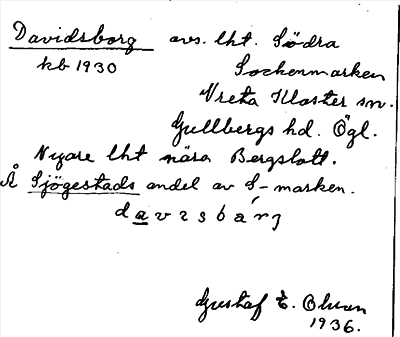 Davidsborg avs. lht. Södra
kb 1930 Sockenmarken
Vreta Kloster sn.
Gullbergs hd. Ögl.
Nyare lht nära Bergslott.
Å Sjögestads andel av S-marken.
Gustaf E. Olson
1936.